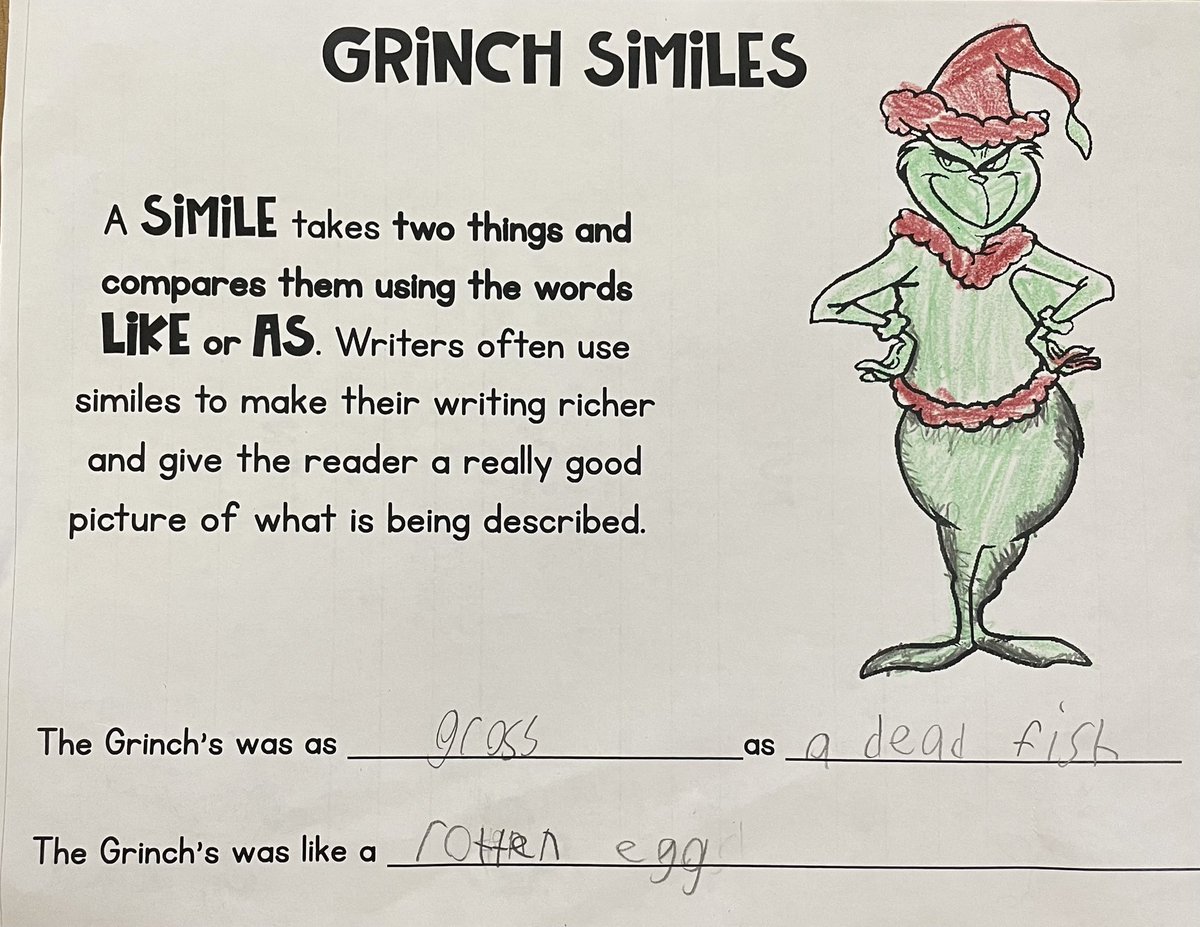 GRiNCH SiMiLES
A SiMiLE takes two things and
compares them using the words
LiKE or AS. Writers often use
similes to make their writing richer
and give the reader a really good
picture of what is being described.
The Grinch's was as gross as a dead fish
The Grinch's was like a rotten egg